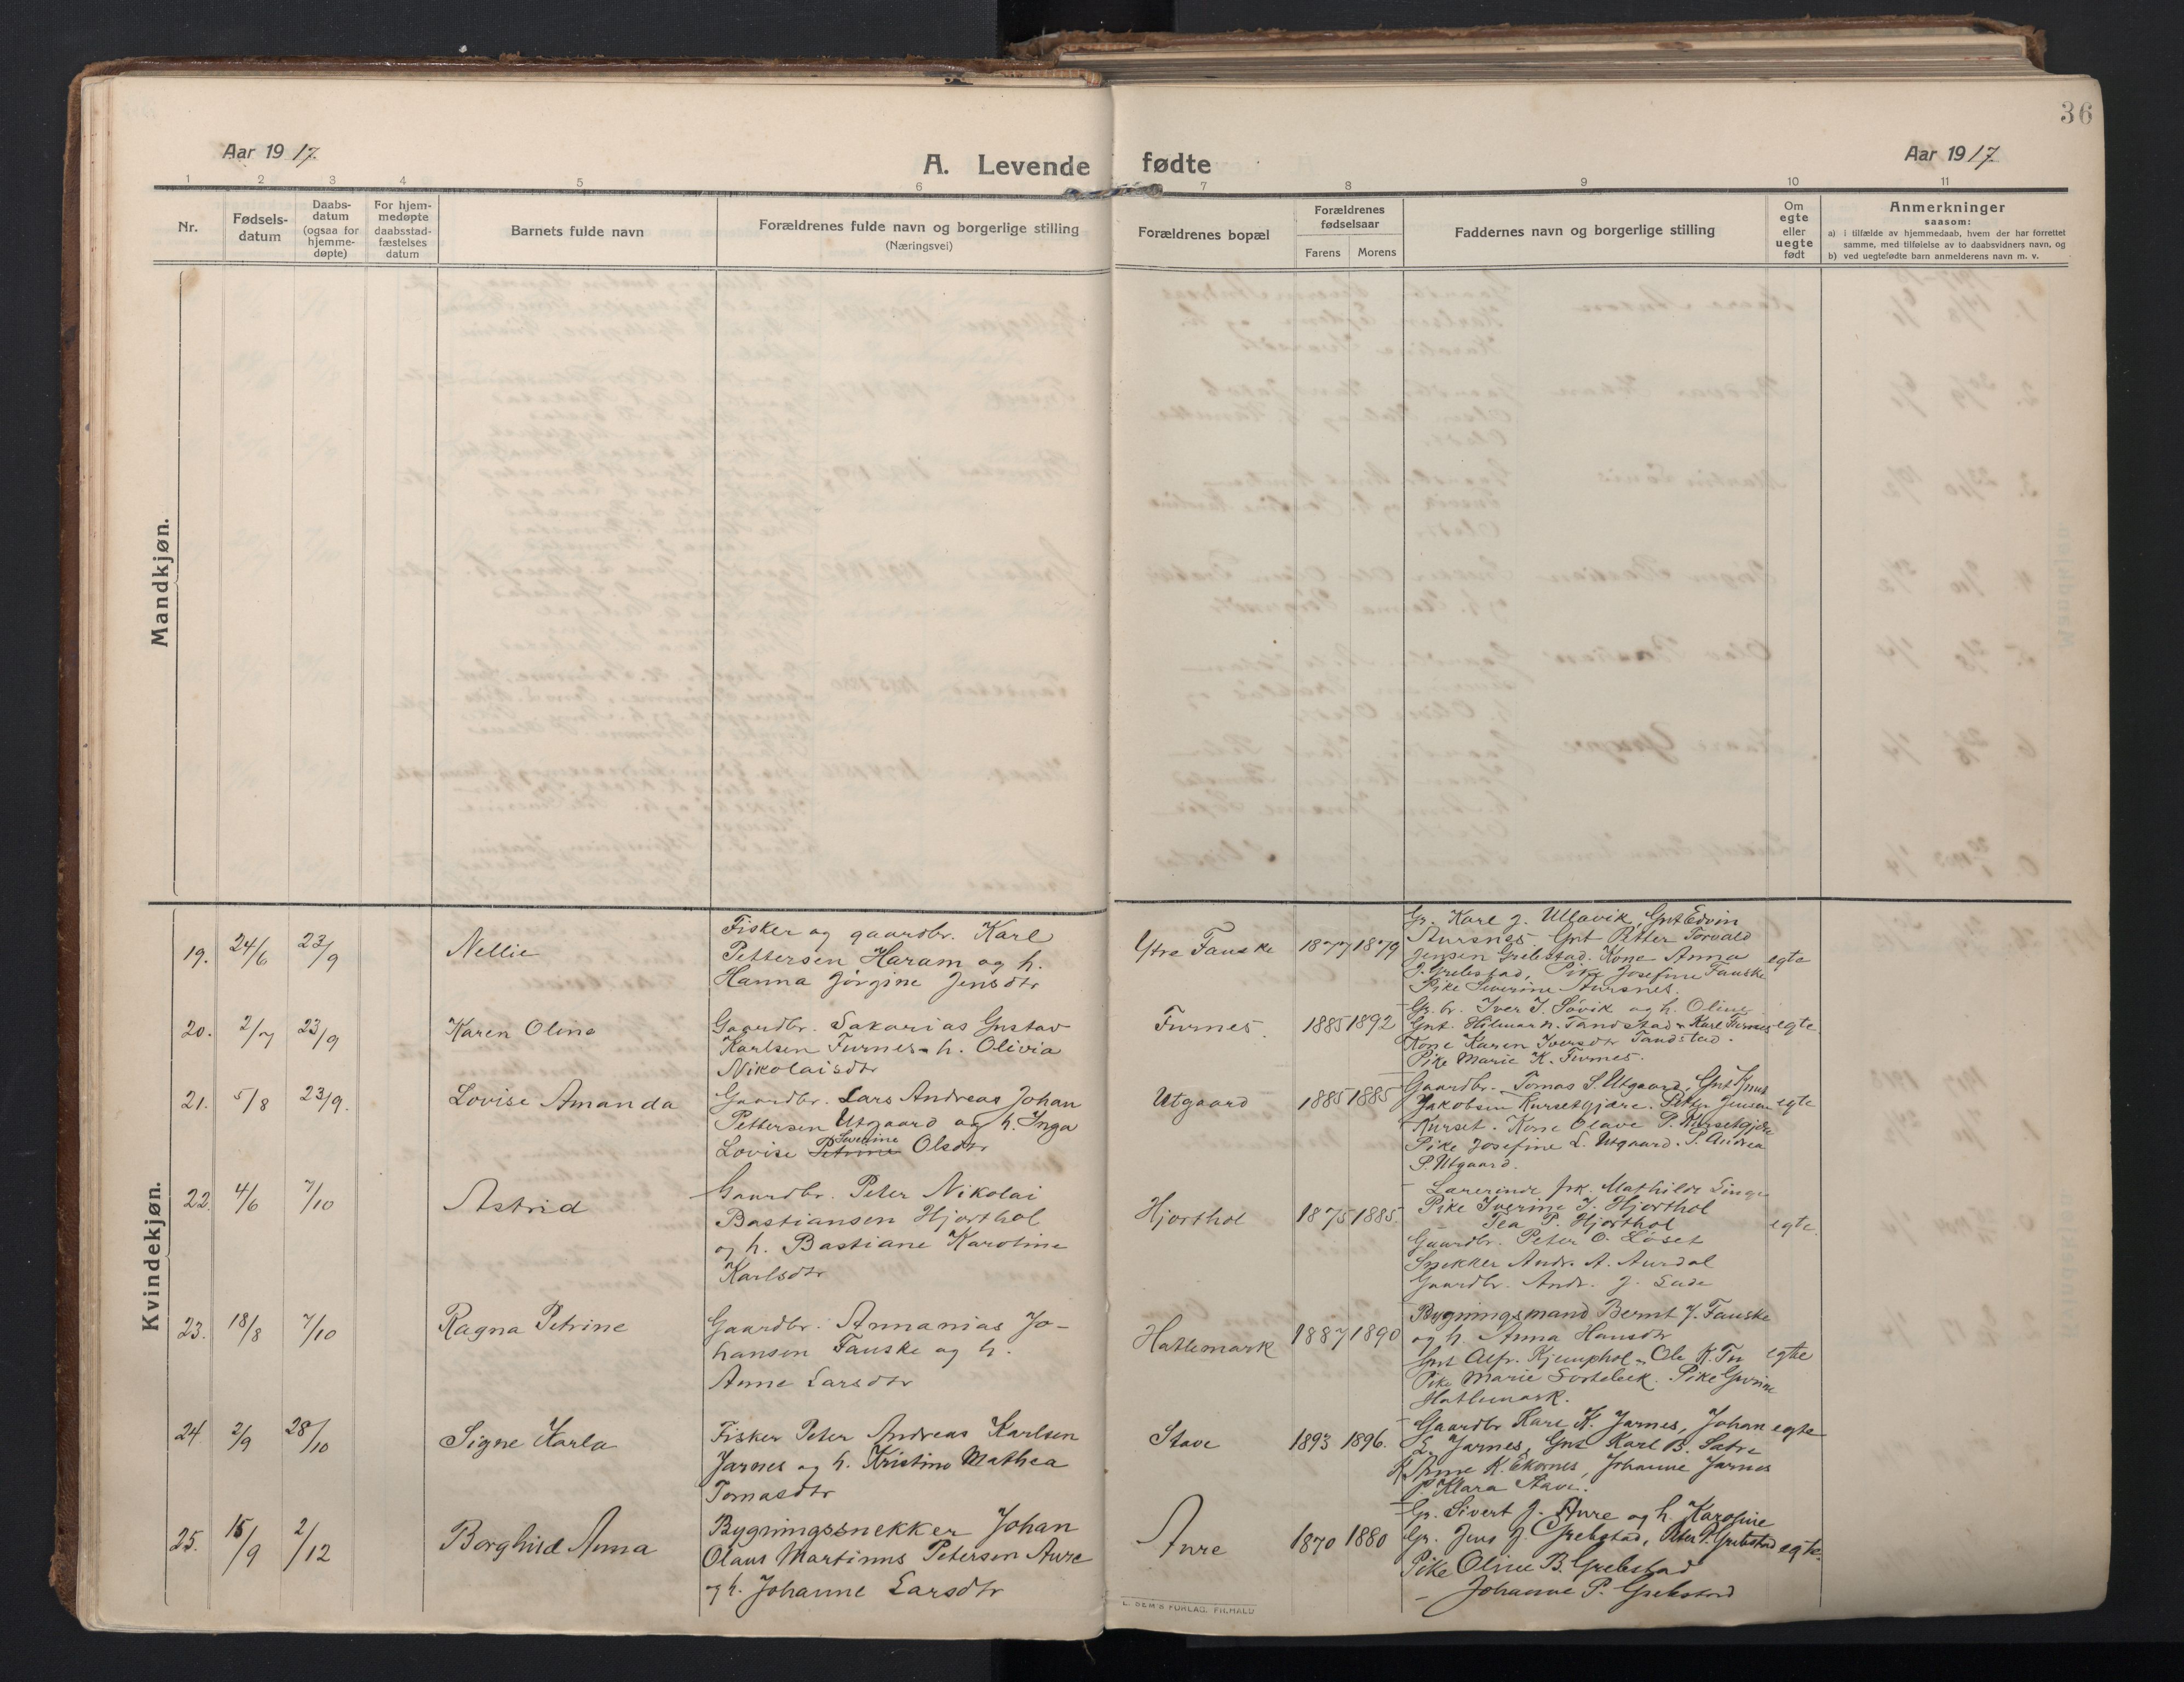 36
Aar 1917.
A. Levende fødte
Aar 1917.
1 2 3 4 5 6 7 8 9 10 11
Nr.
Fødsels-
datum
Daabs-
datum
(ogsaa for
hjemme-
døpte)
For hjem-
medøpte
daabsstad-
fæstelses
datum
Barnets fulde navn
Forældrenes fulde navn og borgerlige stilling
(Næringsvei)
Forældrenes bopæl
Forældrenes
fødselsaar
Farens Morens
Faddernes navn og borgerlige stilling
Om
egte
eller
uegte
født
Anmerkninger
saasom:
a) i tilfælde av hjemmedaab, hvem der har forrettet
samme, med tilføielse av to daabsvidners navn, og
b) ved uegtefødte barn anmelderens navn m. v.
Mandkjøn.
Kvindekjøn.
19. 24/6 23/9
Nellie
Fisker og gaardbr. Karl
Pettersen Haram og h.
Hanna Jørgine Jensdtr
Ytre Fauske 1877 1879
Gr. Karl J. Ullavik, Gnt Edvin
Aursnes. Gnt Petter Torvald
Jensen Grebestad. Kone Anna
J. Grebestad, Pike Josefine Fauske
Pike Severine Aursnes.
egte
20. 2/7 23/9
Karen Oline
Gaardbr. Sakarias Gustav
Karlsen Furnes - h. Olivia
Nikolaisdtr
Furnes. 1885 1892
Gr. br. Iver I. Søvik og h. Oline
Gnt. Hilmar N. Tandstad - Karl Furnes
Kone Karen Iversdtr Tandstad.
Pike Marie K. Furnes.
egte
21. 5/8 23/9.
Lovise Amanda
Gaardbr. Lars Andreas Johan
Pettersen Utgaard og h. Inga
Severine
Lovise Petrine Olsdtr
Utgaard 1885 1885
Gaardbr. Tomas S. Utgaard, Gnt Knut
Jakobsen Kursetgjære. Jensen
Kurset. Kone Olave P. Kursetgjære
Pike Josefine L. Utgaard. P. Andrea
P. Utgaard.
egte
22. 4/6 7/10
Astrid
Gaardbr. Peter Nikolai
Bastiansen Hjorthol
og h. Bastiane Karoline
Karlsdtr
Hjorthol 1875 1885
Lærerinde frk. Mathilde
Pike Iverine I. Hjorthol
Tea P. Hjorthol
Gaardbr. Peter O. Løset
Snekker Andr. A. Aurdal
Gaardbr. Andr. J. Lade
egte.
23. 18/8 7/10
Ragna Petrine
Gaardbr. Annanias Jo-
hansen Fauske og h.
Anne Larsdtr
Hatlemark 1887 1890
Bygningsmand Bernt J. Fauske
og h. Anna Hansdtr
Gnt Alfr. Kjemphol - Ole K. Tu
Pike Marie Sortebek. Pike Gurine
Hatlemark.
egte
24. 2/9 28/10
Signe Karla
Fisker Peter Andreas Karlsen
Jarnes og h. Kristine Mathea
Tomasdtr
Stave 1893 1896.
Gaardbr Karl K. Jarnes, Johan
L. Jarnes, Gnt Karl B. Satre
K. Anne K. Ekornes, Johanne Jarnes
P. Klara Stave.
egte
25. 15/9 2/12
Borghild Anna
Bygningssnekker Johan
Olaus Martinus Petersen Aure
og h. Johanne Larsdtr
Aure 1870 1880
Gr. Sivert J. Aure og h. Karoline
Gr. Jens J. Grebstad, Peter P. Grebstad
Pike Oline B. Grebstad
- Johanne P. Grebstad
egte.